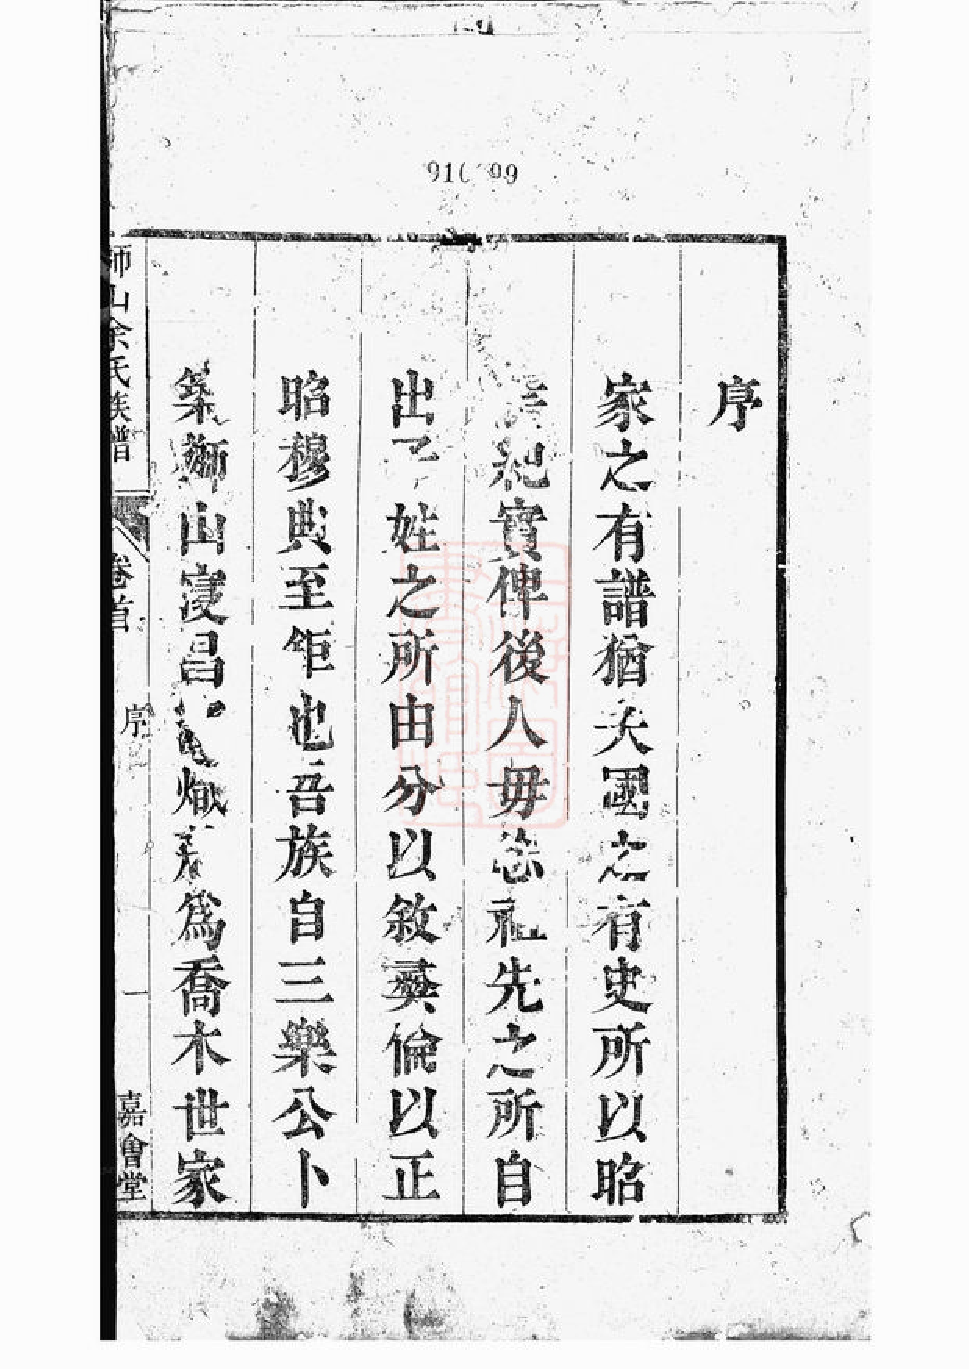 序
家之有譜猶夫國之有史所以昭
紀實俾後人毋忘祖先之所自
出子姓之所由分以敘彝倫以正
昭穆典至鉅也吾族自三樂公卜
築獅山寖昌熾為喬木世家
師山余氏族譜
卷首
序
一
嘉會堂